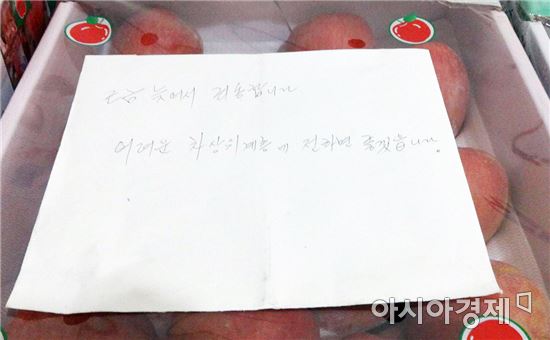 조금 늦어서 죄송합니다
어려운 차상위계층에 전하면 좋겠습니다.
아시아경제